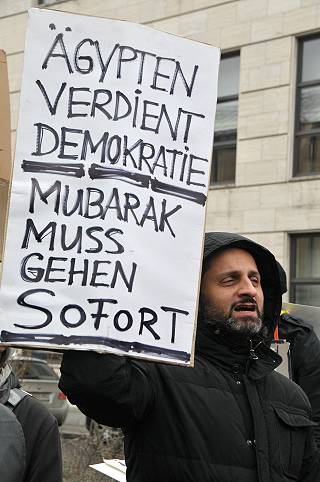 ÄGYPTEN
VERDIENT
DEMOKRATIE
MUBARAK
MUSS
GEHEN
SOFORT